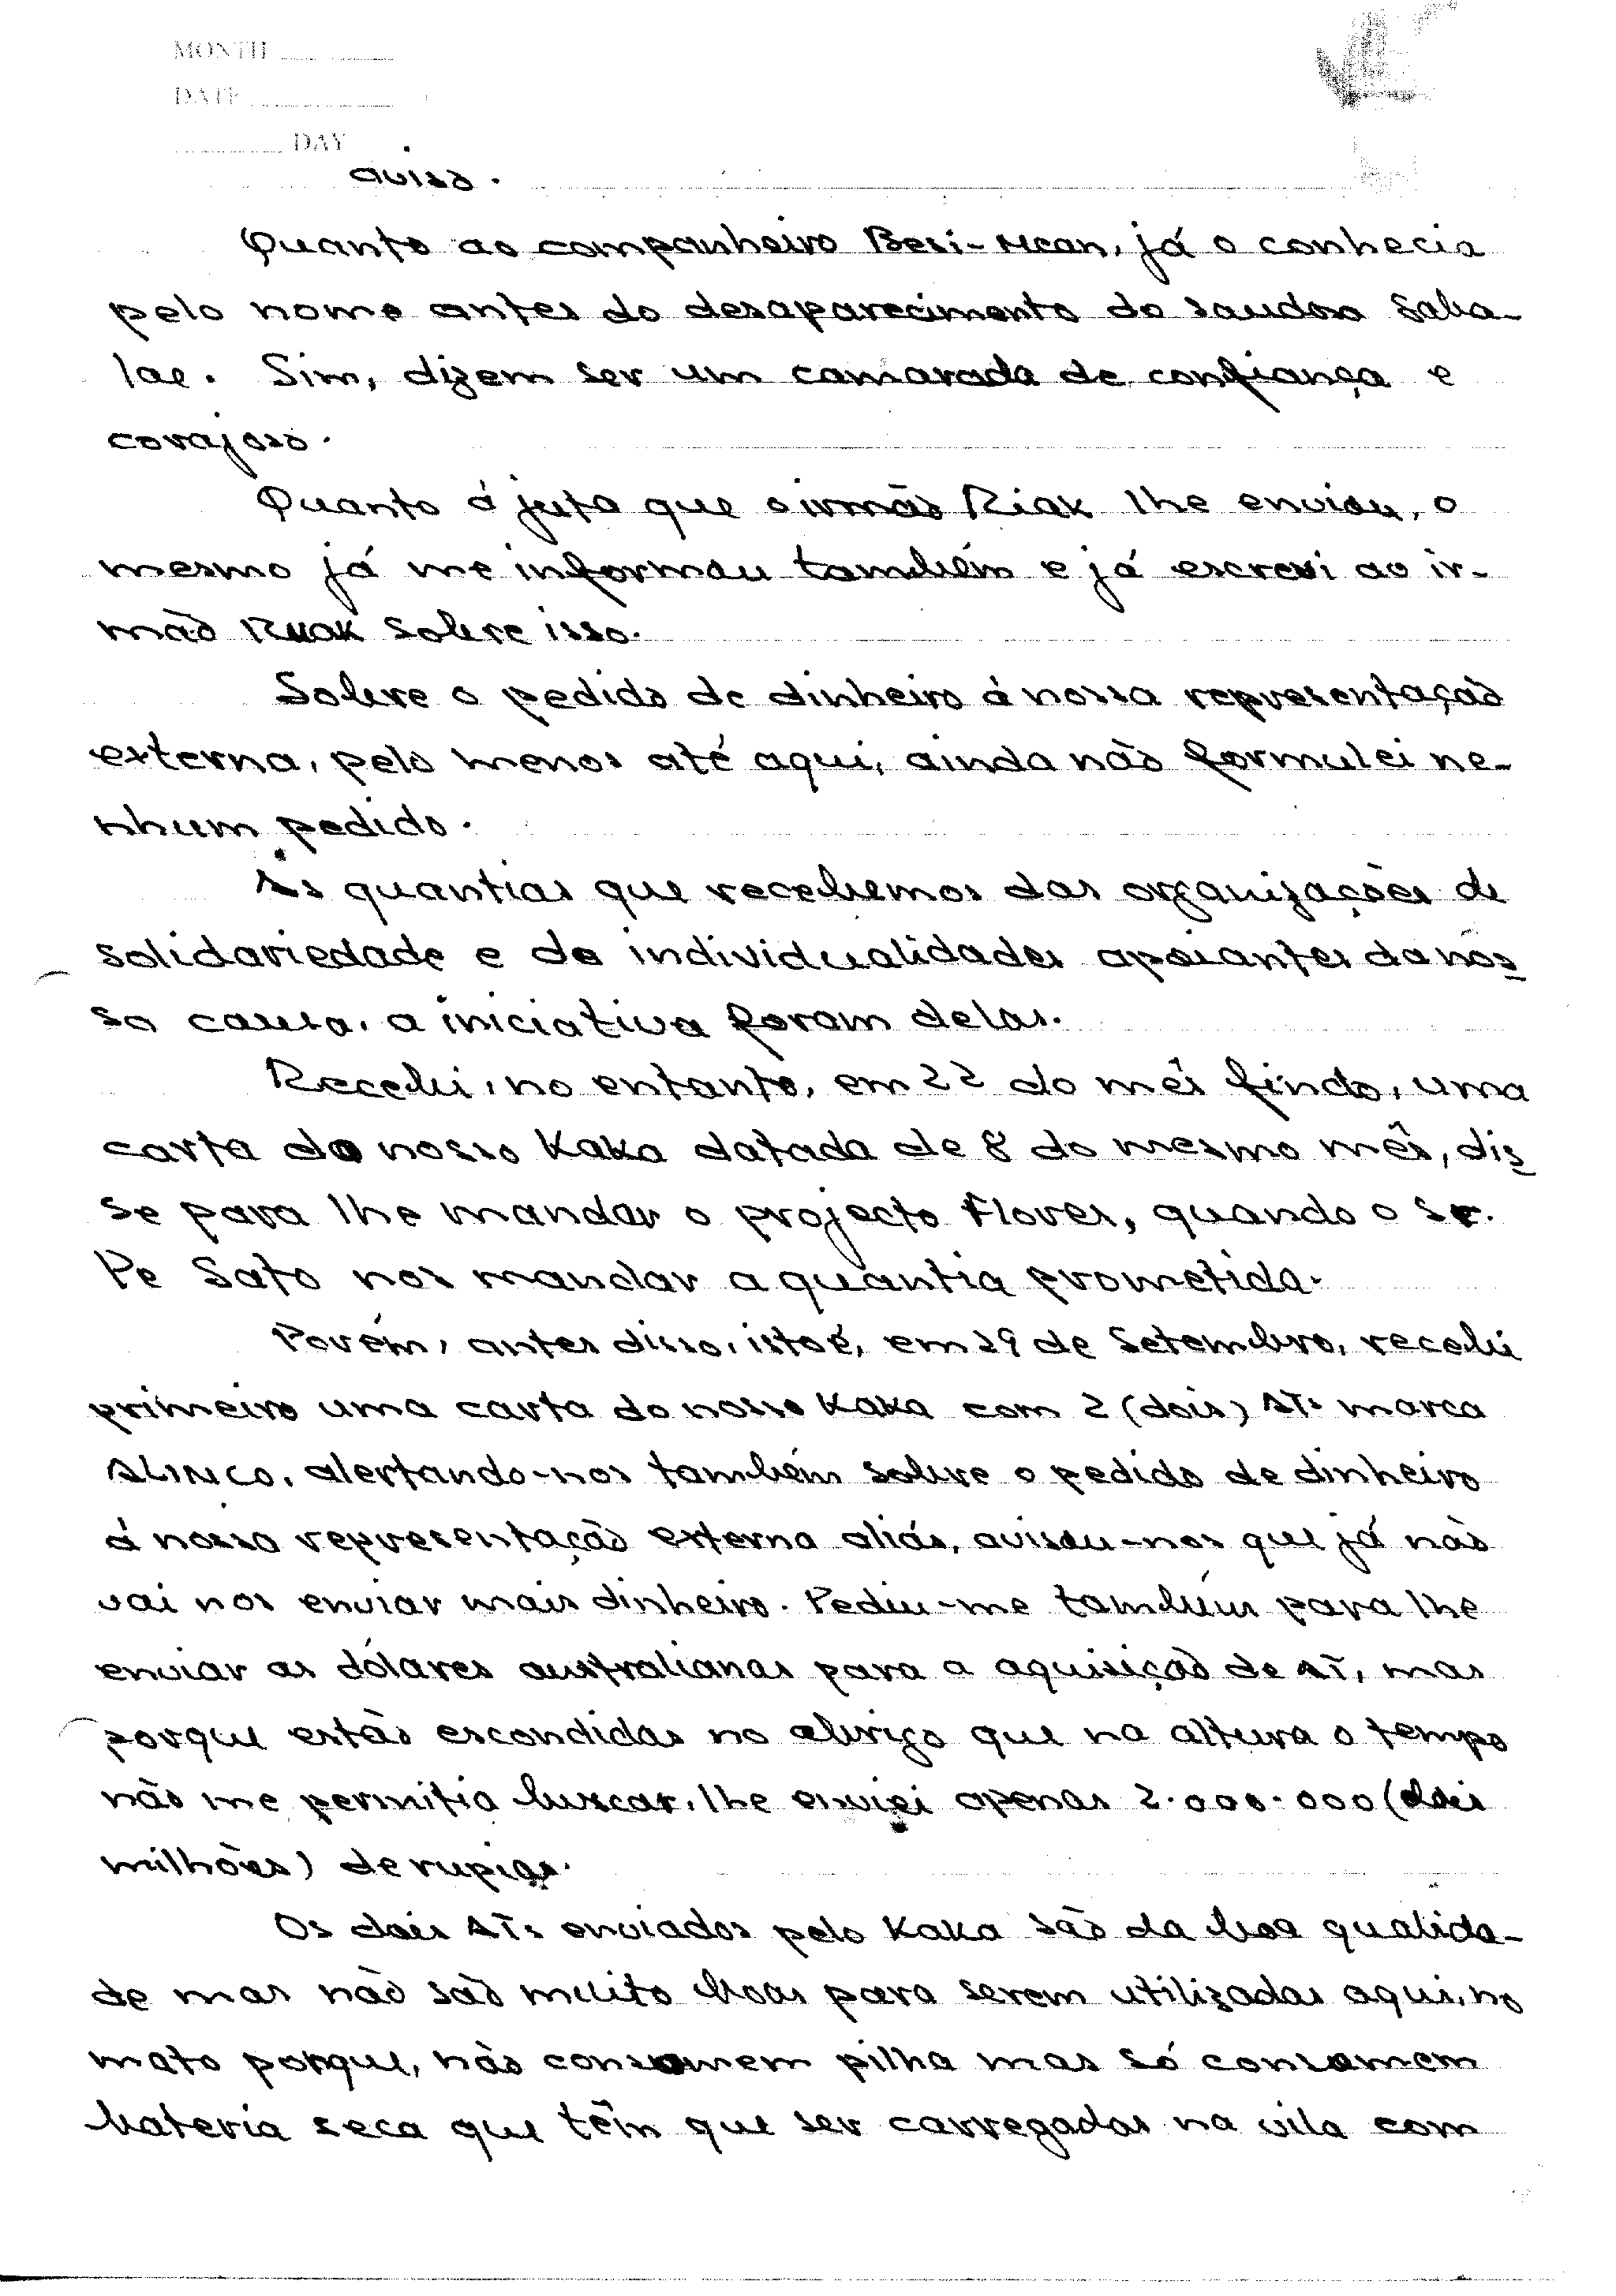 MONTH
DATE
DAY
aviso.
Quanto ao companheiro Besi-Mean, já o conhecia
pelo nome antes do desaparecimento do saudoso Saba-
lae. Sim, dizem ser um camarada de confiança e
corajoso.
Quanto á juta que o irmão Riak lhe enviou, o
mesmo já me informou também e já escrevi ao ir-
mão Ruak sobre isso.
Sobre o pedido de dinheiro á nossa representação
externa, pelo menos até aqui, ainda não formulei ne-
nhum pedido.
As quantias que recebemos das organizações de
solidariedade e de individualidades apoiantes da nos
sa causa, a iniciativa foram delas.
Recebi, no entanto, em 22 do mês findo, uma
carta do nosso Kaka datada de 8 do mesmo mês, dis
se para lhe mandar o projecto Flores, quando o sr.
Pe Sato nos mandar a quantia prometida.
Porém, antes disso, isto é, em 29 de Setembro, recebi
primeiro uma carta do nosso Kaka com 2 (dois) ATs marca
ALINCO, alertando-nos também sobre o pedido de dinheiro
á nossa representação externa aliás, avisou-nos que já não
vai nos enviar mais dinheiro. Pediu-me também para lhe
enviar as dólares australianas para a aquisição de AT, mas
porque estão escondidas no abrigo que na altura o tempo
não me permitia buscar, lhe enviei apenas 2.000.000 (dois
milhões) de rupias.
Os dois ATs enviados pelo Kaka são da boa qualida-
de mas não são muito boas para serem utilizadas aqui, no
mato porque, não consomem pilha mas só consomem
bateria seca que têm que ser carregadas na vila com